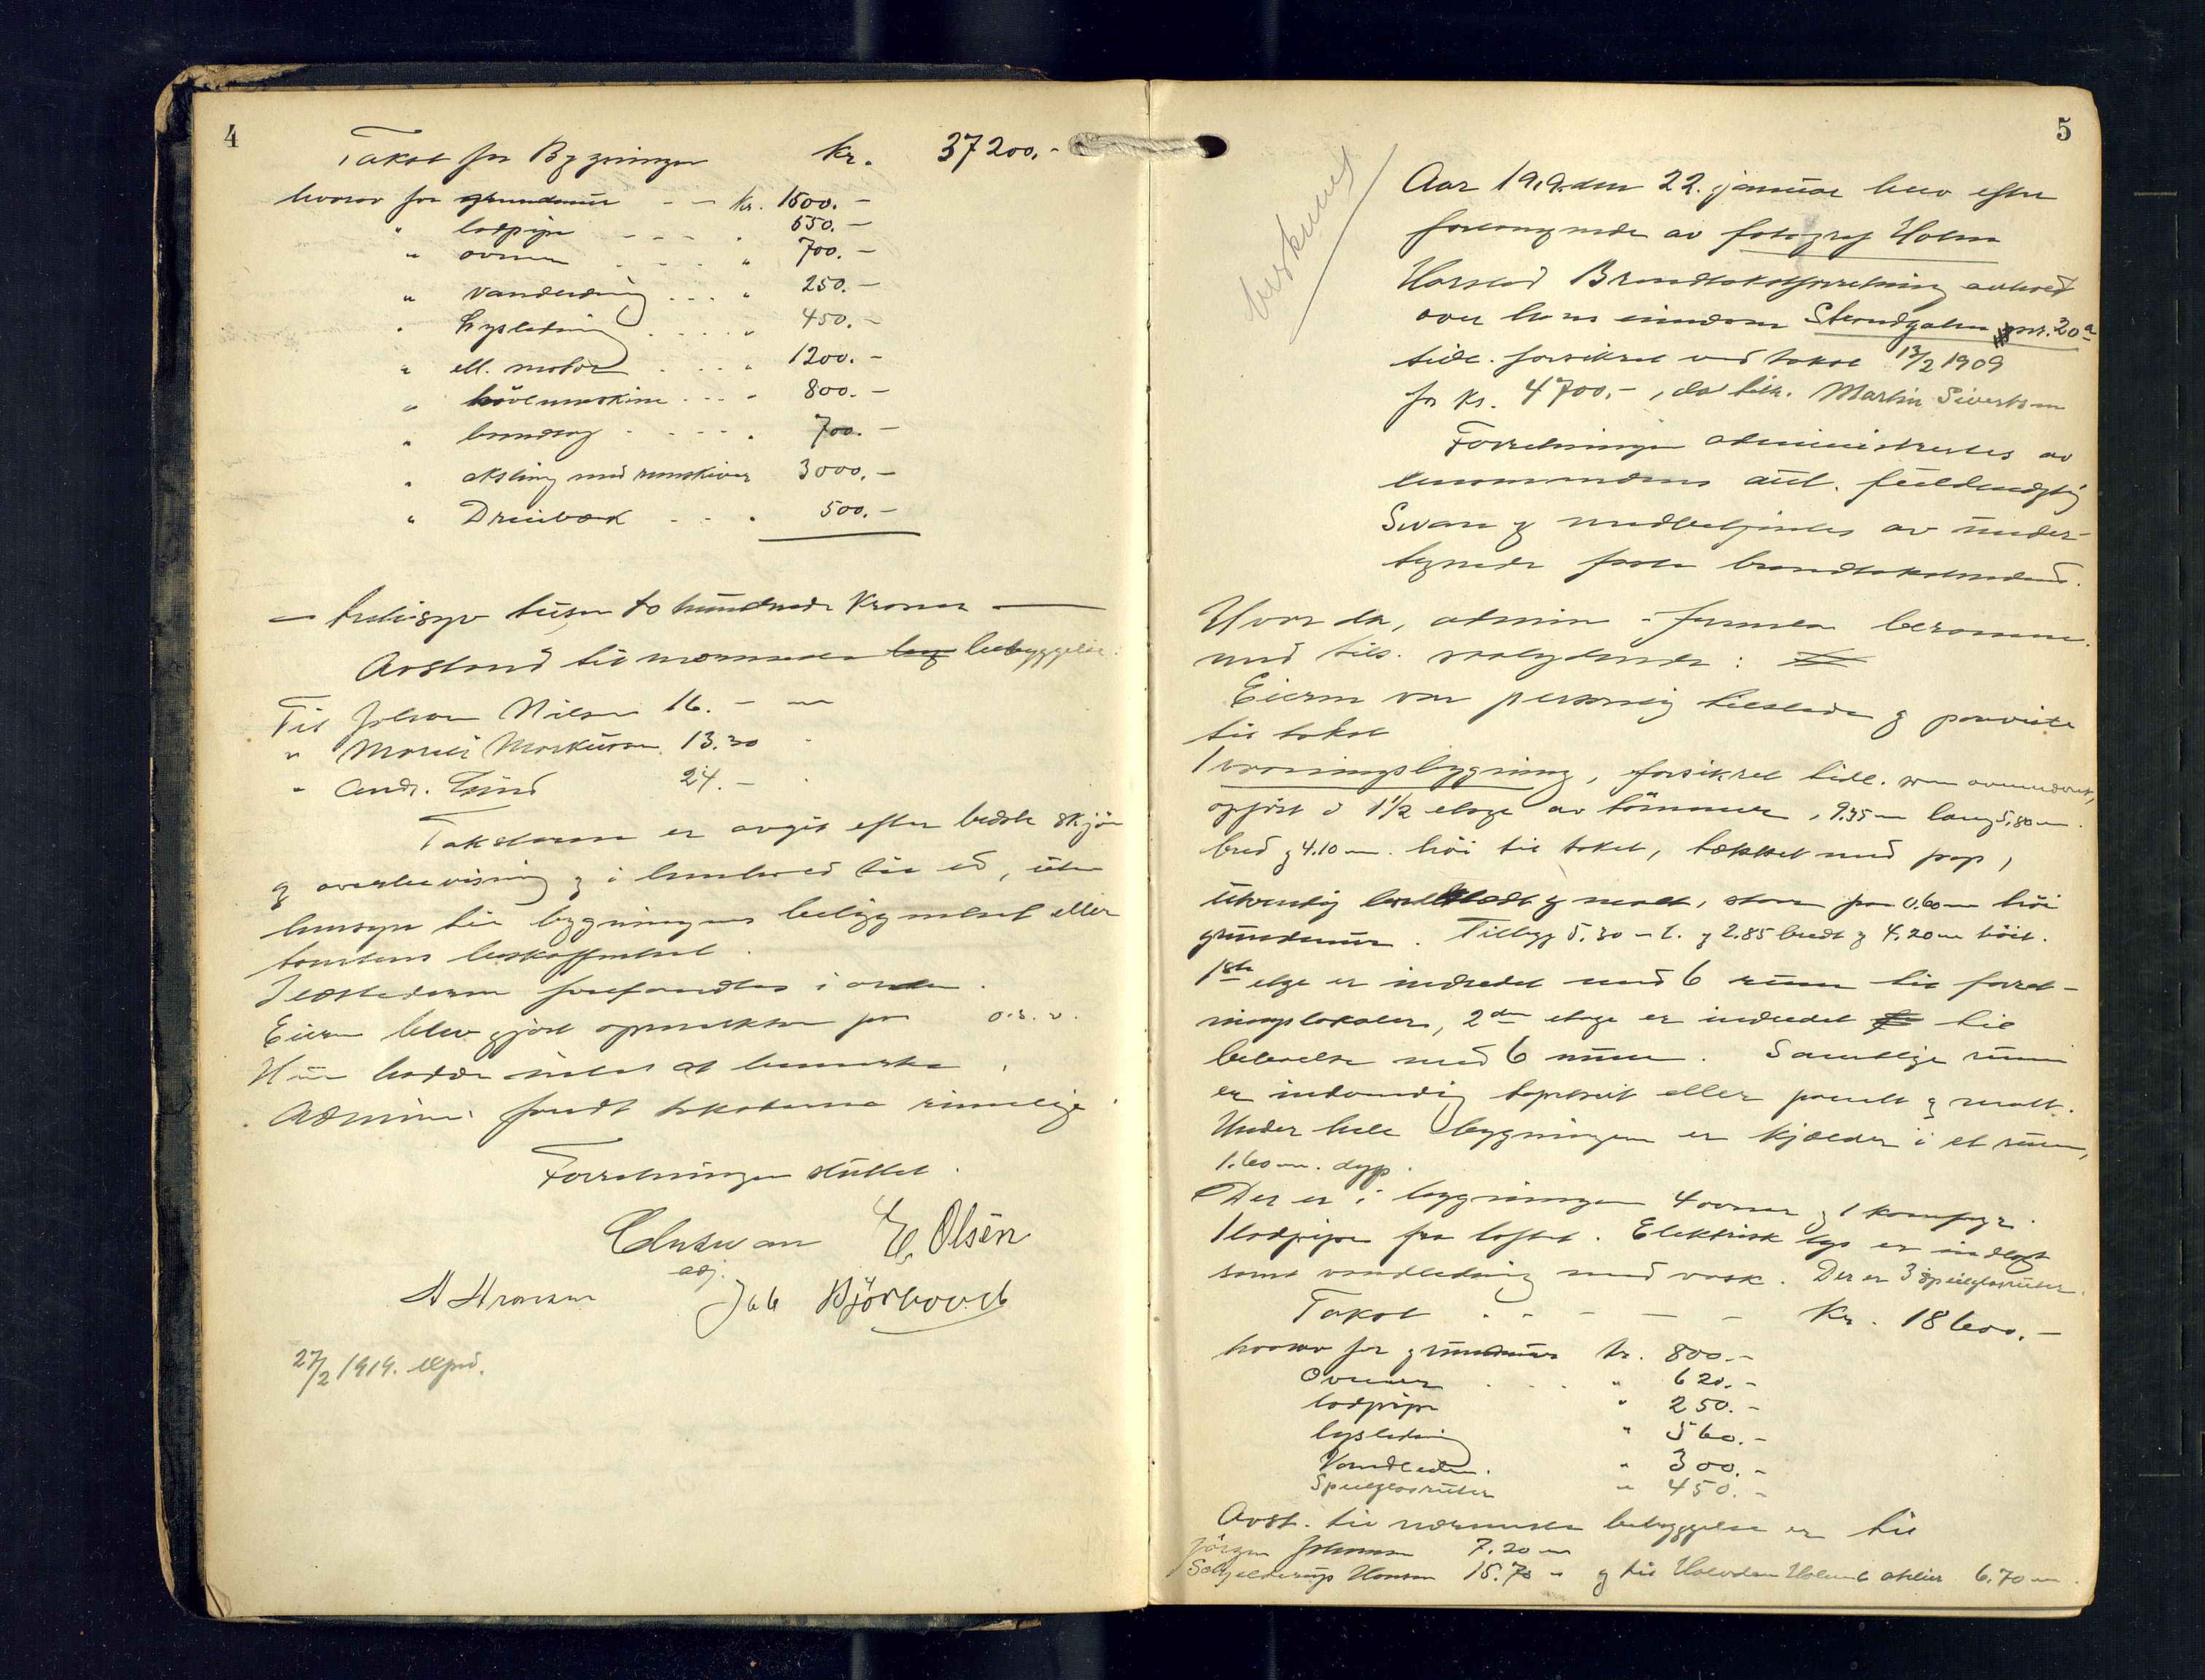 4
Takst for Bygningen Kr. 37200.-
hvorav for grundmur - - Kr. 1500.-
" lodpipe - - - " 550.-
" ovnen . . . . " 700.-
" Vandledning . . . " 250.-
" Lysledning . . . . " 450.-
" ell. motor . . . . " 1200.-
" hövlemaskine . . . " 800.-
" bandsag - - - - . 700.-
" aksling med remskiver 3000.-
" Dreiebænk - - - . 500.-
— trettisyv tusen to hundrede Kroner —
Avstand til nærmeste bebyggelse.
Til Johan Nilsen 16.- m
" Morten Markussen 13.30 "
" Andr. Lund 24.- .
Taksterne er avgit efter bedste skjön
og overbevisning og i henhold til ed, uten
hensyn til bygningens beliggenhet eller
tomtens beskaffenhet.
Ildstederne forefandtes i orden.
Eieren blev gjort opmerksom paa o.s.v.
Han hadde intet at bemerke.
Admin. fandt taksterne rimelige.
Forretningen sluttet.
E. Olsen
adj.
Jak Björkvoldt
27/2 1919. exped.
5
Aar 1919 den 22. januar blev efter
forlangende av fotograf Holm
Harstad Brandtakstforretning avholdt
over hans eiendom Strandgaten nr. 20a
tidl. forsikret ved takst 13/2 1909
for Kr. 4700.-, da tilh. Martin Sivertsen
Forretningen administrertes av
lensmandens aut. fuldmægtig
Svan og medbetjentes av under-
tegnede faste brandtakstmænd.
Hvor da, admin - fremla berammelse
med tils. saalydende:
Eieren var personlig tilstede og paaviste
til takst
1 vaaningsbygning, forsikret tidl. som ovennævnt,
opfört i 1½ etage av tömmer, 9.35 m lang 5.80 m.
bred og 4.10 m. höi til taket, tækket med pap,
utvendig bordklædt og malt, staar paa 0.60 m höi
grundmur. Tilbygg 5.30 m l. og 2.85 bredt og 4.20 m höit.
1ste etage er indredet med 6 rum til forret-
ningslokaler, 2den etage er indredet til
beboelse med 6 rum. Samtlige rum
er indvendig tapetsert eller panelt og malt.
Under hele bygningen er kjælder i et rum,
1.60 m. dyp.
Der er i bygningen 4 ovner og 1 komfyr.
1 lodpipe fra loftet. Elektrisk lys er indlagt
samt vandledning med vask. Der er 3 speilglasruter.
Takst . . - - - - Kr. 18600.-
hvorav for grundmur kr. 800.-
Ovnene . . . " 620.-
lodpipe " 250.-
lysledning " 560.-
Vandledn. " 300.-
Speilglasruter " 450.-
Avst. til nærmeste bebyggelse er til
Jörgen Johansen 7.20 m
Schjelderup Hansen 15.70 " og til Halvdan Holms atelier 6.70 m.